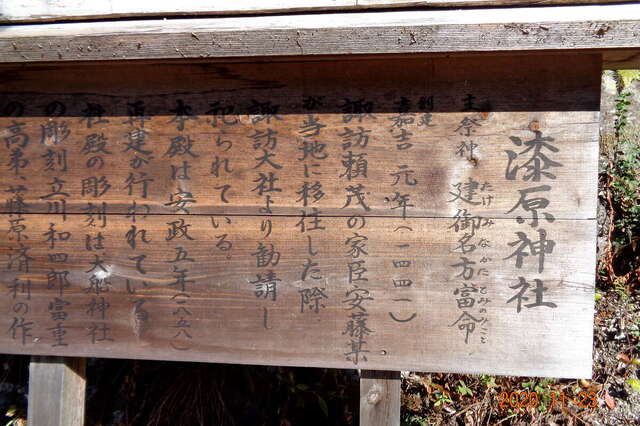 漆原神社
主祭神 建御名方富命
たけみなかたとみのみこと
創建
嘉吉元年(一四四一)
諏訪頼茂の家臣安藤某
が当地に移住した際
諏訪大社より勧請し
祀られている。
本殿は安政五年(一八五八)
再建が行われている。
社殿の彫刻は大船神社
の彫刻立川和四郎富重
の高弟藤原済利の作
2020.11.23